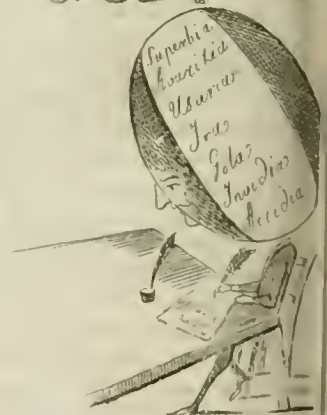 Superbia
Avaritia
Usuria
Ira
Gola
Invidia
Accidia